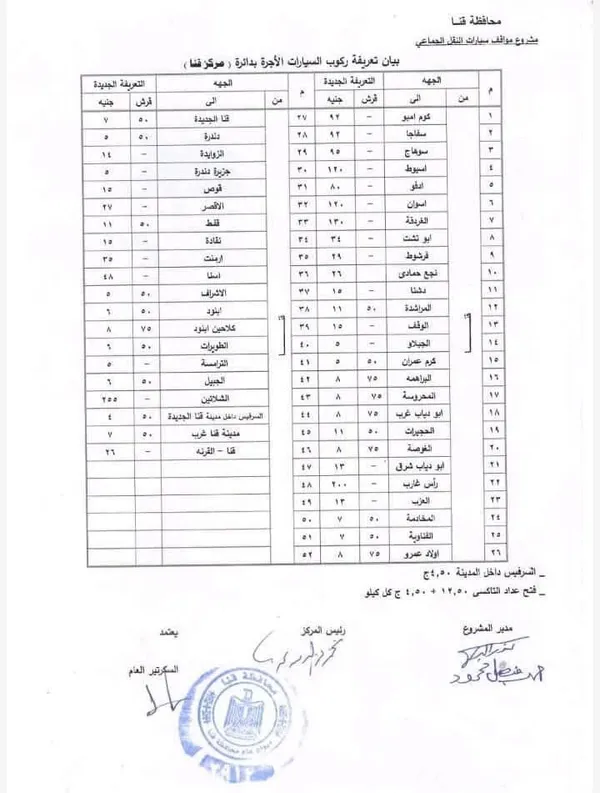 محافظة قنــا
مشروع مواقف سيارات النقل الجماعي
بيان تعريفة ركوب السيارات الأجرة بدائرة ( مركز قنا )
م من الجهه التعريفة الجديدة م من الجهه التعريفة الجديدة
الى قرش جنيه الى قرش جنيه
١ كوم امبو - ٩٢ ٢٧ قنا الجديدة ٥٠ ٧
٢ سفاجا - ٩٢ ٢٨ دندرة ٥٠ ٥
٣ سوهاج - ٩٥ ٢٩ الزوايدة - ١٤
٤ اسيوط - ١٢٠ ٣٠ جزيرة دندرة - ٥
٥ ادفو - ٨٠ ٣١ قوص - ١٥
٦ اسوان - ١٢٠ ٣٢ الاقصر - ٢٧
٧ الغردقة - ١٣٠ ٣٣ قفط ٥٠ ١١
٨ ابو تشت - ٣٤ ٣٤ نقادة - ١٥
٩ فرشوط - ٢٩ ٣٥ ارمنت - ٣٥
١٠ نجع حمادى ٢٦ ٣٦ اسنا - ٤٨
١١ دشنا - ١٥ ٣٧ الاشراف ٥٠ ٥
١٢ المراشدة ٥٠ ١١ ٣٨ ابنود ٥٠ ٦
١٣ قنا الوقف - ١٥ ٣٩ قنا كلاحين ابنود ٧٥ ٨
١٤ الجبلاو - ٥ ٤٠ الطويرات ٥٠ ٦
١٥ كرم عمران ٥٠ ٥ ٤١ الترامسة - ٥
١٦ البراهمه ٧٥ ٨ ٤٢ الجبيل ٥٠ ٦
١٧ المحروسة ٧٥ ٨ ٤٣ الشلاتين - ٢٥٥
١٨ ابو دياب غرب ٧٥ ٨ ٤٤ السرفيس داخل مدينة قنا الجديدة ٥٠ ٤
١٩ الحجيرات ٥٠ ١١ ٤٥ مدينة قنا غرب ٥٠ ٧
٢٠ الغوصة ٧٥ ٨ ٤٦ قنا - القرنه - ٢٦
٢١ ابو دياب شرق - ١٣ ٤٧
٢٢ رأس غارب - ٢٠٠ ٤٨
٢٣ العزب - ١٣ ٤٩
٢٤ المخادمة ٥٠ ٧ ٥٠
٢٥ القناوية ٥٠ ٧ ٥١
٢٦ اولاد عمرو ٧٥ ٨ ٥٢
_ السرفيس داخل المدينة ٤,٥٠ج
_ فتح عداد التاكسى ١٢,٥٠ + ٤,٥٠ ج كل كيلو
مدير المشروع رئيس المركز يعتمد
السكرتير العام
محافظة قنا
ديوان عام محافظة قنا